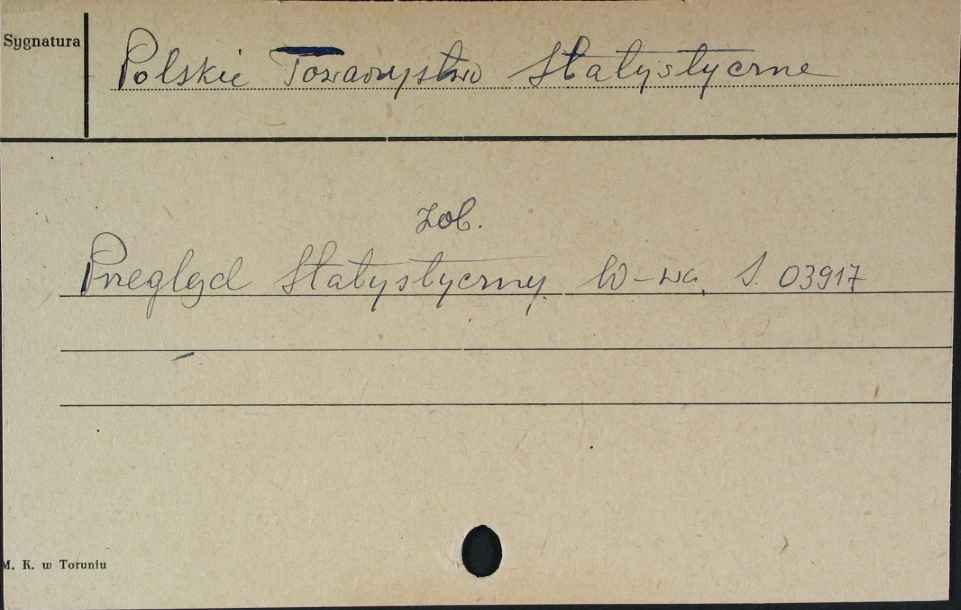 Sygnatura
Polskie Towarzystwo Statystyczne
zob.
Przegląd Statystyczny, W-wa, S. 03917
M. K. w Toruniu